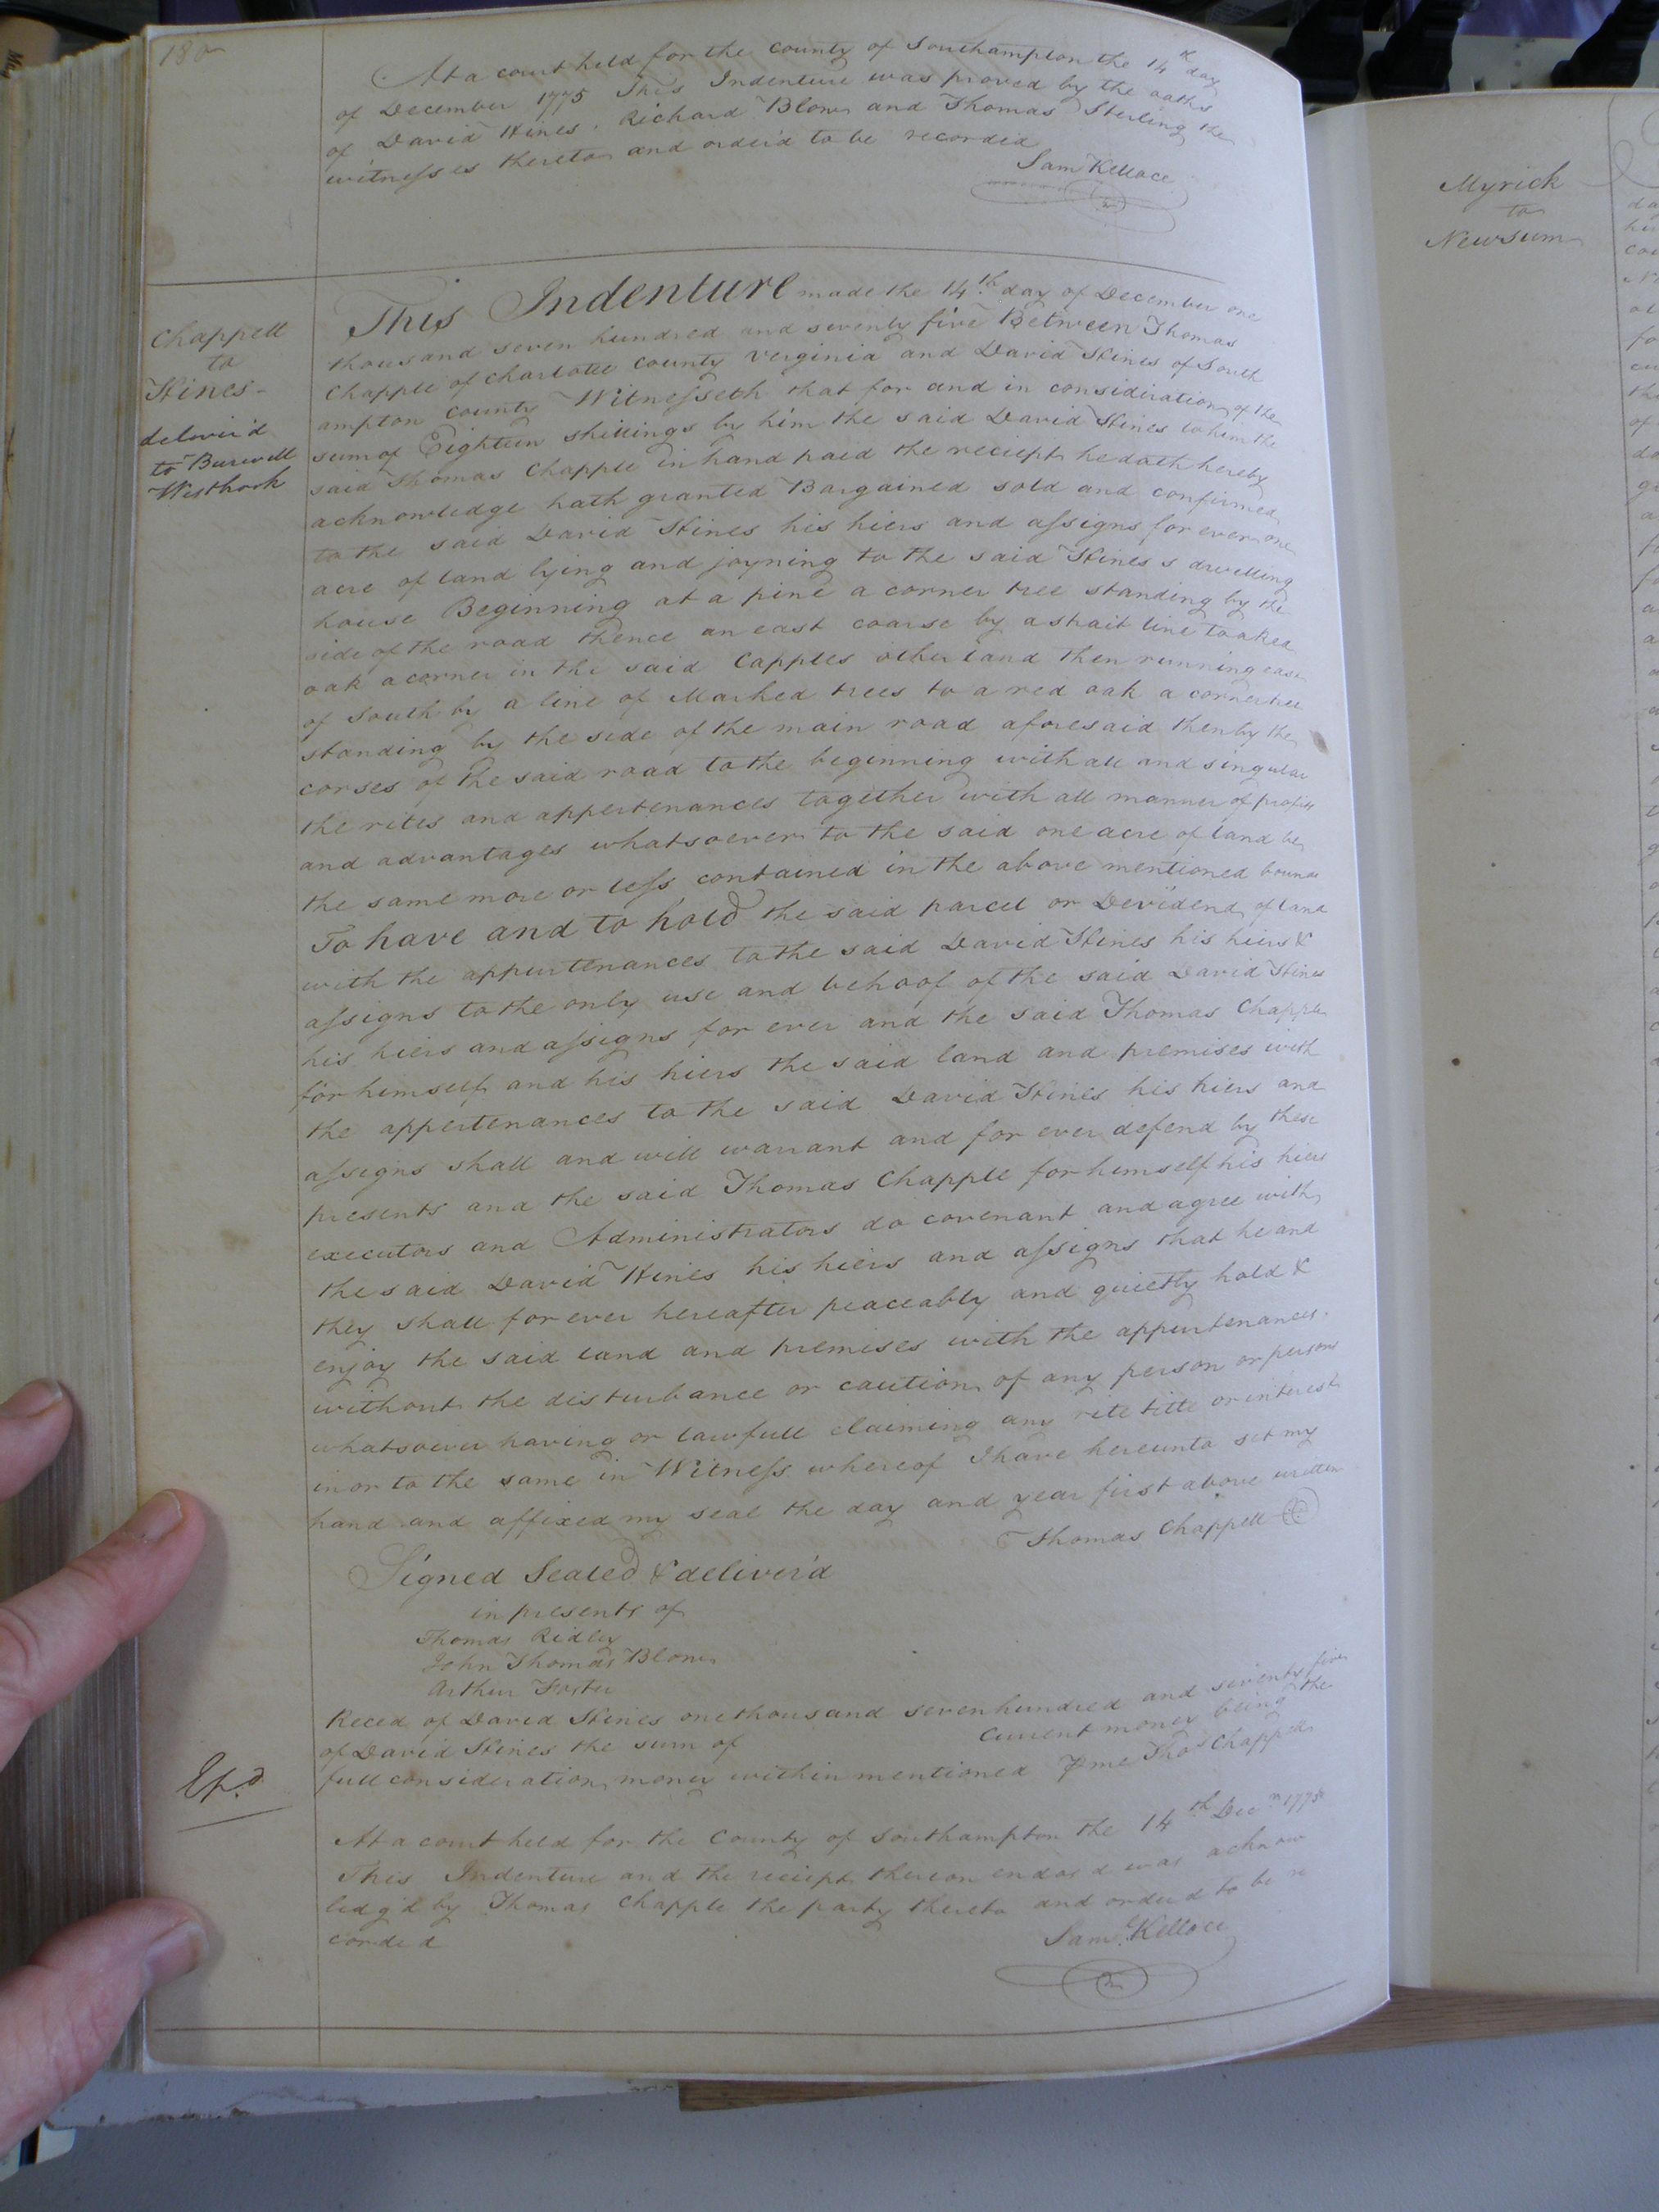 180
At a court held for the county of Southampton the 14th day
of December 1775 This Indenture was proved by the oaths
of David Hines, Richard Blow and Thomas Sterling the
witnesses thereto and order'd to be recorded
Sam Kellace
Chappell
to
Hines-
deliver'd
to Burwell
Westbrook
This Indenture made the 14th day of December one
thousand seven hundred and seventy five Between Thomas
Chapple of Charlotte County Verginia and David Hines of South
ampton County Witnesseth that for and in consideration of the
sum of Eighteen shillings by him the said David Hines to him the
said Thomas Chapple in hand paid the reciept he doth hereby
acknowledge hath granted Bargained sold and confirmed
to the said David Hines his hiers and assigns for ever one
acre of land lying and joyning to the said Hines s dwelling
house Beginning at a pine a corner tree standing by the
side of the road thence an east coarse by a strait line to a Red
oak a corner in the said Capples other land then running east
of South by a line of Marked trees to a red oak a corner tree
standing by the side of the main road aforesaid then by the
corses of the said road to the beginning with all and singular
the rites and appertenances together with all manner of profits
and advantages whatsoever to the said one acre of land be
the same more or less contained in the above mentioned bounds
To have and to hold the said parcel or Devidend of land
with the appurtenances to the said David Hines his hiers &
assigns to the only use and behoof of the said David Hines
his hiers and assigns for ever and the said Thomas Chapple
for himself and his hiers the said land and premises with
the appertenances to the said David Hines his hiers and
assigns shall and will warrant and for ever defend by these
presents and the said Thomas Chapple for himself his hiers
executors and Administrators do covenant and agree with
the said David Hines his hiers and assigns that he and
they shall for ever hereafter peaceably and quietly hold &
enjoy the said land and premises with the appurtenances
without the disturbance or caution of any person or persons
whatsoever having or lawfull claiming any rite title or interest
in or to the same in Witness whereof I have hereunto set my
hand and affixed my seal the day and year first above written
Thomas Chappell
Signed Sealed & deliver'd
in presents of
Thomas Ridley
John Thomas Blow
Arthur Foster
Reced of David Hines one thousand seven hundred and seventy five
of David Hines the sum of Current money being the
full consideration money within mentioned P me Thos Chappell
Exd
At a court held for the County of Southampton the 14th Decm 1775
This Indenture and the reciept thereon endors'd was acknow
ledg'd by Thomas Chapple the party thereto and order'd to be re
corded
Saml Kellace
Myrick
to
Newsum